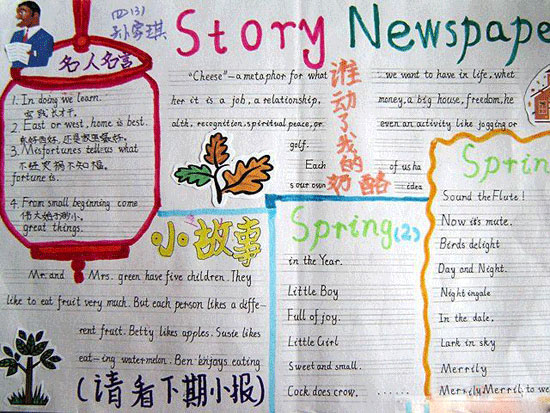 四(3)
Story Newspape
名人名言
1. In doing we learn.
实践长才干。
2. East or west, home is best.
东好西好,还是家里最好。
3. Misfortunes tell us what
不经灾祸不知福。
fortune is.
4. From small beginning come
伟大始于渺小。
great things.
"Cheese"—a metaphor for what we want to have in life, whet
her it is a job, a relationship, money, a big house, freedom, he
alth, recognition, spiritual peace, or even an activity like jogging or
golf.
Each of us ha
s our own idea
谁动了我的奶酪
小故事
Mr. and Mrs. green have five children. They
like to eat fruit very much. But each person likes a diffe-
rent fruit. Betty likes apples. Susie likes
eat-ing watermelon. Ben enjoys eating
(请看下期小报)
Spring(2)
in the Year.
Little Boy
Full of joy.
Little Girl
Sweet and small.
Cock does crow. ......
Sprin
Sound the Flute!
Now it's mute.
Birds delight
Day and Night.
Nightingale
In the dale.
Lark in sky
Merrily
Merrily, Merril to we